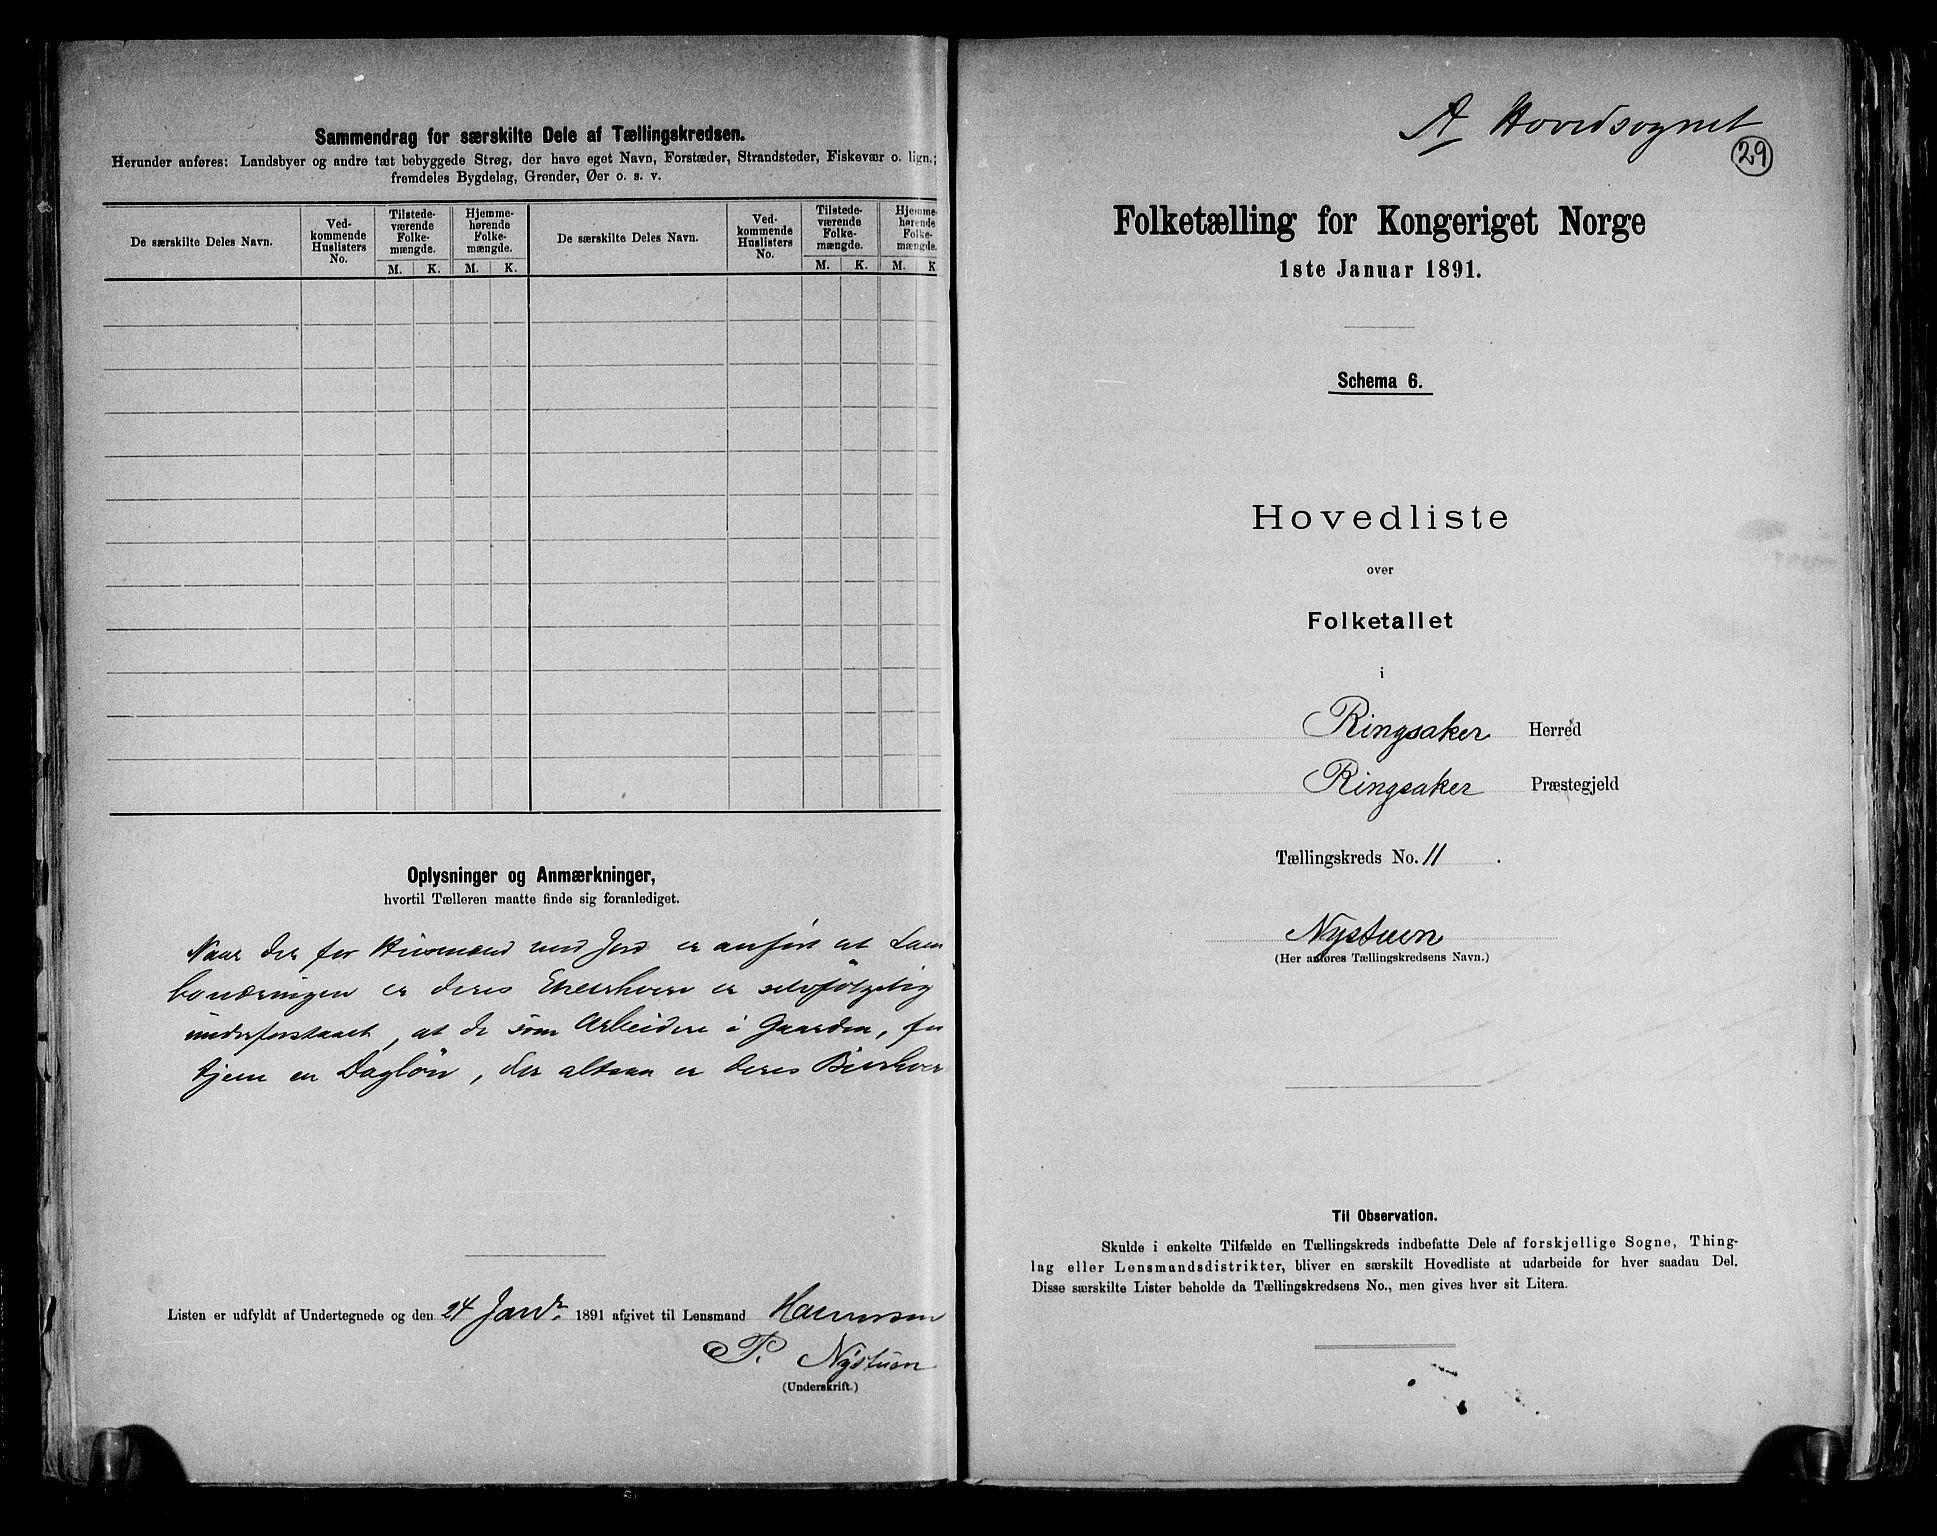 Sammendrag for særskilte Dele af Tællingskredsen.
Herunder anføres: Landsbyer og andre tæt bebyggede Strøg, der have eget Navn, Forstæder, Strandsteder, Fiskevær o. lign.;
fremdeles Bygdelag, Grender, Øer o. s. v.
De særskilte Deles Navn.
Ved-
kommende
Huslisters
No.
Tilstede-
værende
Folke-
mængde.
M. K.
Hjemme-
hørende
Folke-
mængde.
M. K.
De særskilte Deles Navn.
Ved-
kommende
Huslisters
No.
Tilstede-
værende
Folke-
mængde.
M. K.
Hjemme-
hørende
Folke-
mængde.
M. K
Oplysninger og Anmærkninger,
hvortil Tælleren maatte finde sig foranlediget.
Naar der for Husmænd med Jord er anført at
er deres er selvfølgelig
underforstaaet, at de som Arbeidere i Gaarden, for
tjene en Dagløn, der altsaa er deres
Listen er udfyldt af Undertegnede og den 24 Janr. 1891 afgivet til Lensmand
P. Nystuen
(Underskrift.)
A Hovedsognet
29
Folketælling for Kongeriget Norge
1ste Januar 1891.
Schema 6.
Hovedliste
over
Folketallet
i
Ringsaker Herred
Ringsaker Præstegjeld
Tællingskreds No. 11.
Nystuen
(Her anføres Tællingskredsens Navn.)
Til Observation.
Skulde i enkelte Tilfælde en Tællingskreds indbefatte Dele af forskjellige Sogne, Thing-
lag eller Lensmandsdistrikter, bliver en særskilt Hovedliste at udarbeide for hver saadan Del.
Disse særskilte Lister beholde da Tællingskredsens No., men gives hver sit Litera.